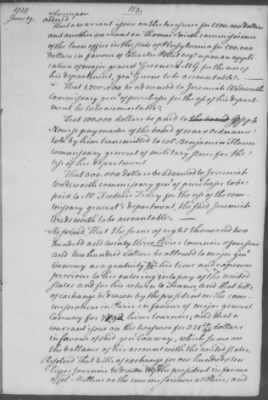 113.
1778
June 19.
Whereupon
Ordered
That a warrant issue on the treasurer for 500,000 dollars
and another warrant on Thomas Smith commissioner
of the loan office in the state of Pensylvania for 500,000
dollars in favour of Charles Pettit esqr upon an applica-
tion of major general Greene Q M G for the use of
his department, genl Greene to be accountable.
That be advanced to Jeremiah Wadsworth
commissary genl of purchases for the use of his depart-
ment he to be accountable:
That 100,000 dollars be paid to Joseph
Nourse pay master of the board of war & ordnance
to be by him transmitted to col. Benjamin Flower
commissary general of military stores for the
use of his department
That 200,000 dollars be advanced to Jeremiah
Wadsworth commissary genl of purchases to be
paid to Mr Tracy for the use of the com-
missary general's department, the said Jeremiah
Wadsworth to be accountable:
Resolved That the sum of eight thousand two
hundred and twenty three livres tournois
and two hundred dollars be allowed to major genl
Conway as a gratuity for his time and expences
previous to his entering into pay of the united
States and for his return to France; and that bills
of exchange be drawn by the president on the com-
missioners in Paris in favour of major general
Conway for livres tournois; and that a
warrant issue on the treasurer for dollars
in favour of said genl Conway, which sums are
the ballance of his account with the united States.
Resolved That bills of exchange for one hundred
livres tournois be drawn by the president in favour
of on the commissioners at Paris; and